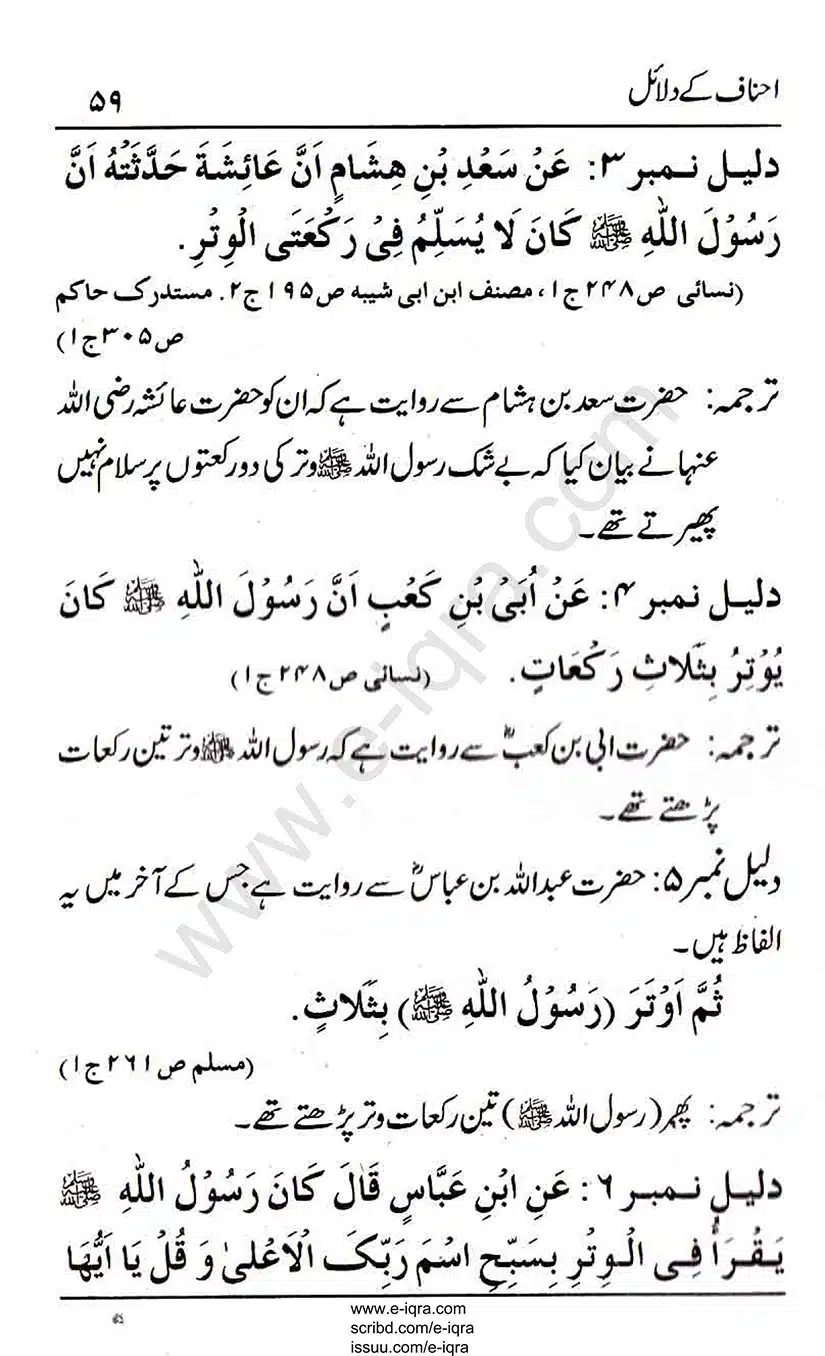 احناف کے دلائل ۵۹
دلیل نمبر ۳: عَنْ سَعْدِ بْنِ هِشَامٍ اَنَّ عَائِشَةَ حَدَّثَتْهُ اَنَّ
رَسُوْلَ اللهِ ﷺ كَانَ لَا يُسَلِّمُ فِىْ رَكْعَتَىِ الْوِتْرِ.
(نسائی ص۲۴۸ ج۱، مصنف ابن ابی شیبه ص۱۹۵ ج۲. مستدرک حاکم
ص۳۰۵ ج۱)
ترجمہ: حضرت سعد بن ہشام سے روایت ہے کہ ان کو حضرت عائشہ رضی اللہ
عنہا نے بیان کیا کہ بے شک رسول اللہ ﷺ وتر کی دو رکعتوں پر سلام نہیں
پھیرتے تھے۔
دلیل نمبر ۴: عَنْ اُبَىْ بْنِ كَعْبٍ اَنَّ رَسُوْلَ اللهِ ﷺ كَانَ
يُوْتِرُ بِثَلَاثِ رَكْعَاتٍ. (نسائی ص۲۴۸ ج۱)
ترجمہ: حضرت ابی بن کعبؓ سے روایت ہے کہ رسول اللہ ﷺ وتر تین رکعات
پڑھتے تھے۔
دلیل نمبر ۵: حضرت عبداللہ بن عباسؓ سے روایت ہے جس کے آخر میں یہ
الفاظ ہیں۔
ثُمَّ اَوْتَرَ (رَسُوْلُ اللهِ ﷺ) بِثَلَاثٍ.
(مسلم ص۲۶۱ ج۱)
ترجمہ: پھر (رسول اللہ ﷺ) تین رکعات وتر پڑھتے تھے۔
دلیل نمبر ۶: عَنِ ابْنِ عَبَّاسٍ قَالَ كَانَ رَسُوْلُ اللهِ ﷺ
يَقْرَأُ فِى الْوِتْرِ بِسَبِّحِ اسْمَ رَبِّكَ الْاَعْلىٰ وَ قُلْ يَا اَيُّهَا
www.e-iqra.com
scribd.com/e-iqra
issuu.com/e-iqra
www.e-iqra.com